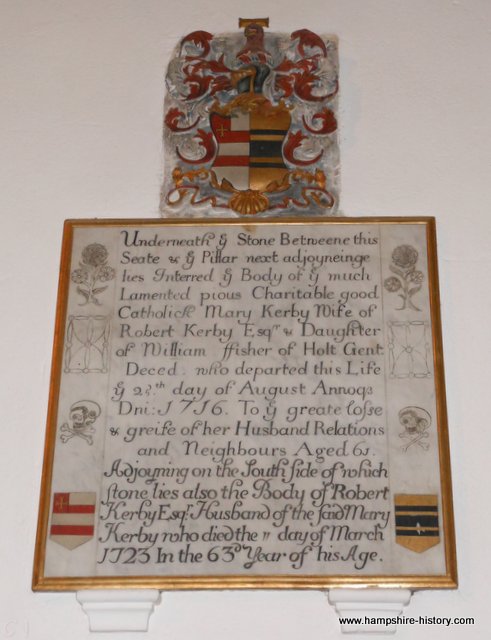 Underneath ÿ Stone Betweene this
Seate & ÿ Pillar next adjoyneinge
lies Interred ÿ Body of ÿ much
Lamented pious Charitable good
Catholick Mary Kerby Wife of
Robert Kerby Esqr & Daughter
of William ffisher of Holt Gent
Deced. who departed this Life
ÿ day of August Annoqs
Dni: 1716. To ÿ greate losse
& greife of her Husband Relations
and Neighbours Aged 61.
Adjoyning on the South side of which
stone lies also the Body of Robert
Kerby Esqr. Husband of the said Mary
Kerby who died the 11 day of March
1723 In the 63d Year of his Age.
www.hampshire-history.com